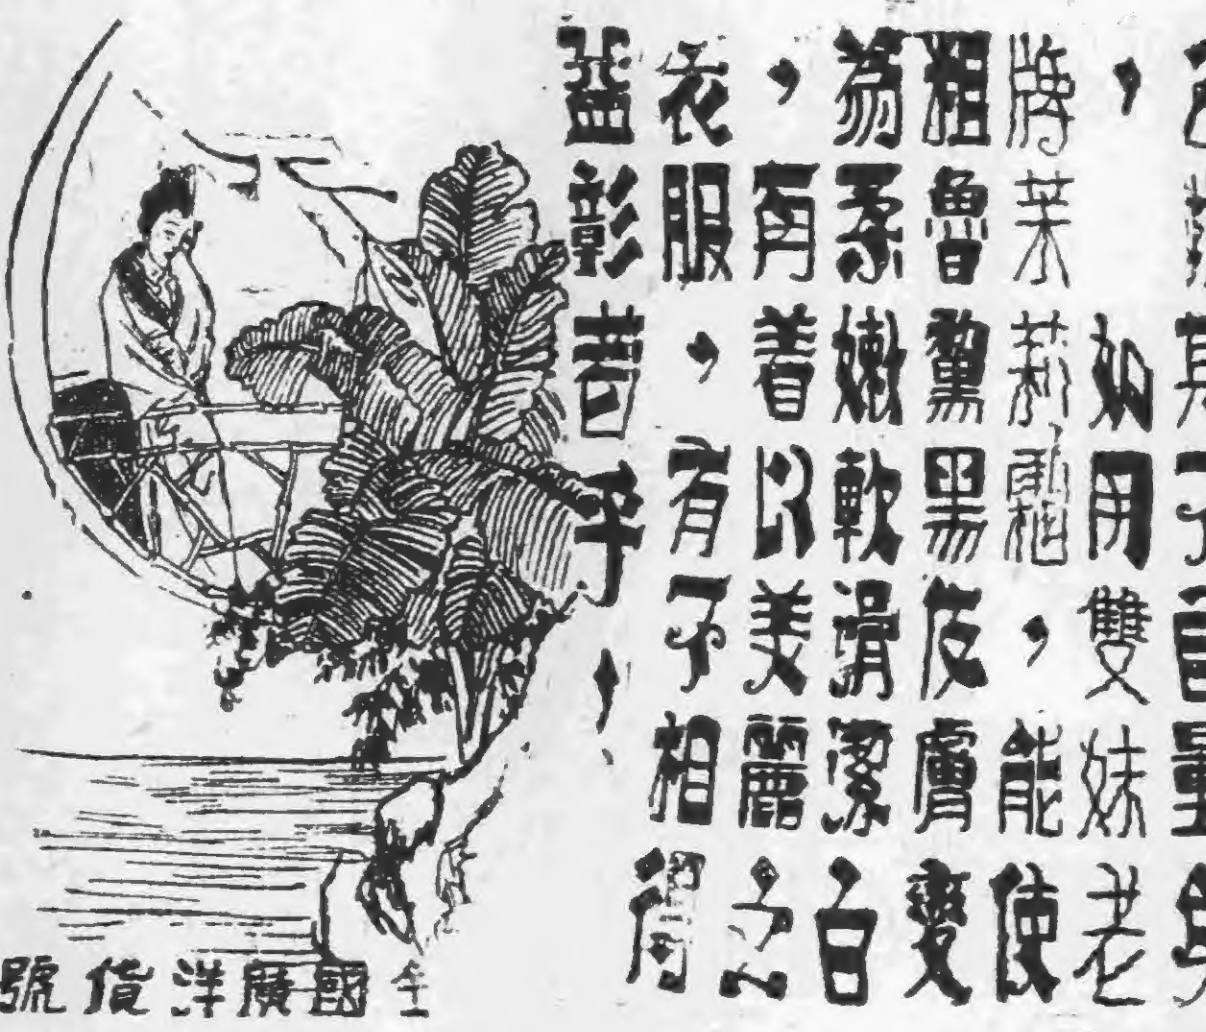 ，如用雙妹老
牌茉莉霜，能使
粗魯黧黑皮膚變
為柔嫩軟滑潔白
，再着以美麗之
衣服，有不相得
益彰者乎，
全國廣洋貨號